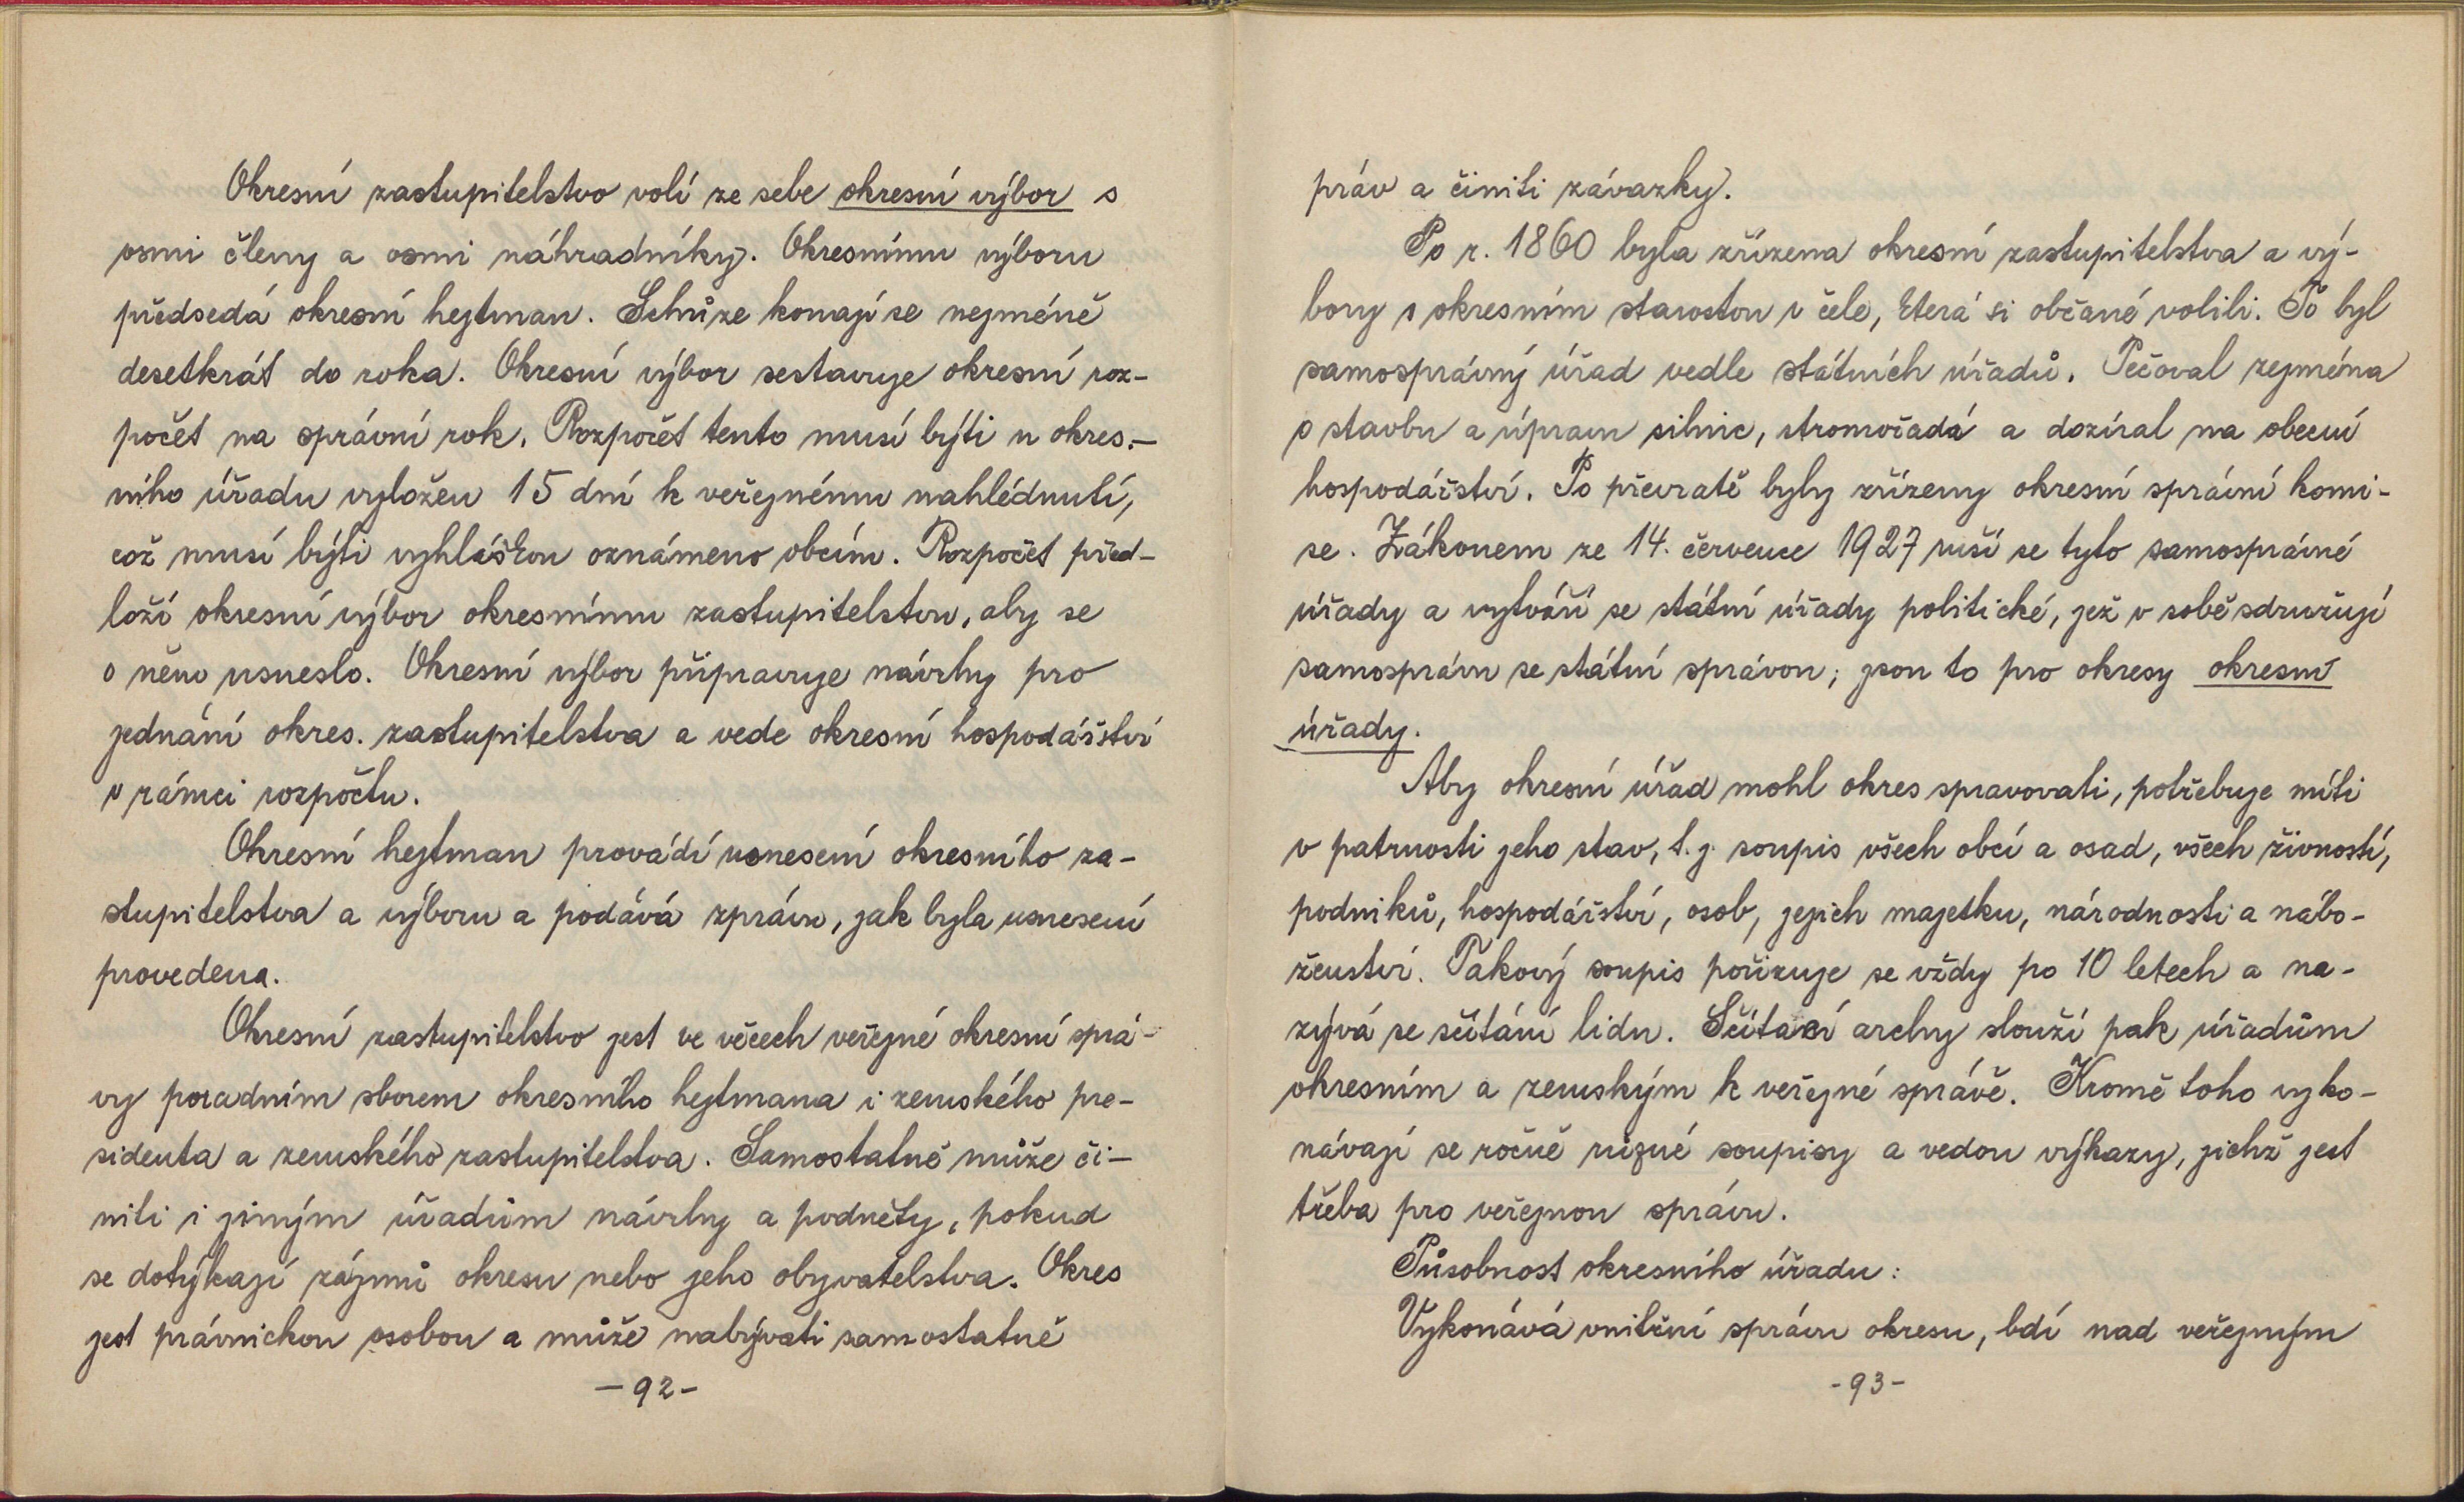 Okresní zastupitelstvo volí ze sebe okresní výbor s
osmi členy a osmi náhradníky. Okresnímu výboru
předsedá okresní hejtman. Schůze konají se nejméně
desetkrát do roka. Okresní výbor sestavuje okresní roz-
počet na správní rok. Rozpočet tento musí býti u okres-
ního úřadu vyložen 15 dní k veřejnému nahlédnutí,
což musí býti vyhláškou oznámeno obcím. Rozpočet před-
loží okresní výbor okresnímu zastupitelstvu, aby se
o něm usneslo. Okresní výbor připravuje návrhy pro
jednání okres. zastupitelstva a vede okresní hospodářství
v rámci rozpočtu.
Okresní hejtman provádí usnesení okresního za-
stupitelstva a výboru a podává zprávu, jak byla usnesení
provedena.
Okresní zastupitelstvo jest ve věcech veřejné okresní sprá-
vy poradním sborem okresního hejtmana i zemského pre-
sidenta a zemského zastupitelstva. Samostatně může či-
niti i jiným úřadům návrhy a podněty, pokud
se dotýkají zájmů okresu nebo jeho obyvatelstva. Okres
jest právnickou osobou a může nabývati samostatně
-92-
práv a činiti závazky.
Po r. 1860 byla zřízena okresní zastupitelstva a vý-
bory s okresním starostou v čele, která si občané volili. To byl
samosprávný úřad vedle státních úřadů. Pečoval zejména
o stavbu a úpravu silnic, stromořadá a dozíral na obecní
hospodářství. Po převratě byly zřízeny okresní správní komi-
se. Zákonem ze 14. července 1927 ruší se tyto samosprávné
úřady a vytváří se státní úřady politické, jež v sobě sdružují
samosprávu se státní správou; jsou to pro okresy okresní
úřady.
Aby okresní úřad mohl okres spravovati, potřebuje míti
v patrnosti jeho stav, t.j. soupis všech obcí a osad, všech živností,
podniků, hospodářství, osob, jejich majetku, národnosti a nábo-
ženství. Takový soupis pořizuje se vždy po 10 letech a na-
zývá se sčítání lidu. Sčítací archy slouží pak úřadům
okresním a zemským k veřejné správě. Kromě toho vyko-
návají se ročně různé soupisy a vedou výkazy, jichž jest
třeba pro veřejnou správu.
Působnost okresního úřadu:
Vykonává vnitřní správu okresu, bdí nad veřejným
-93-